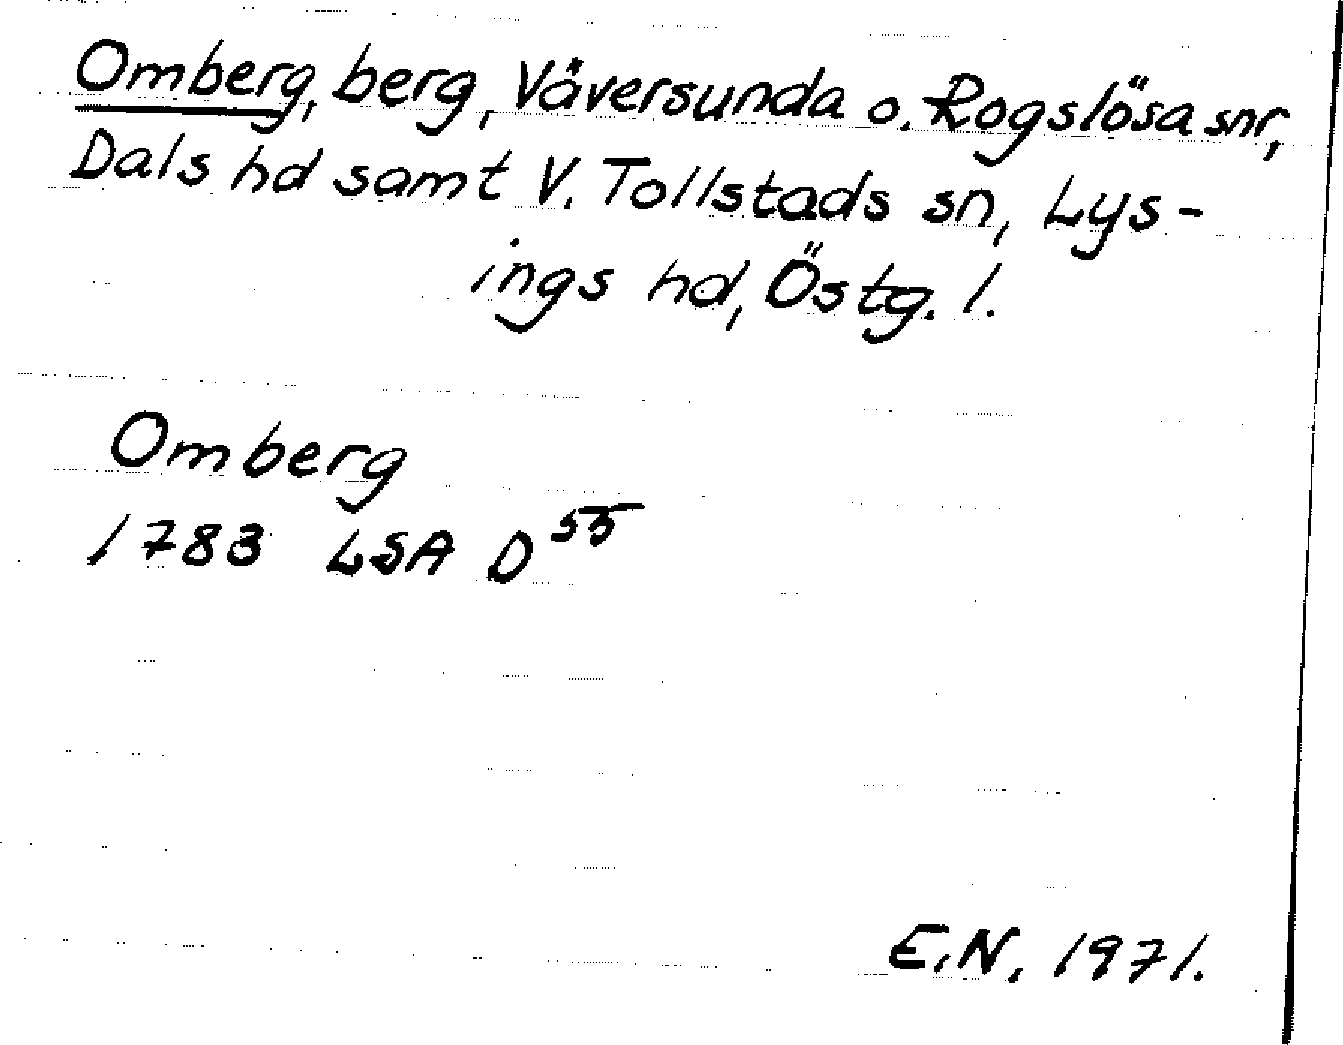 Omberg, berg, Väversunda o. Rogslösa snr,
Dals hd samt V. Tollstads sn, Lys-
ings hd, Östg. l.
Omberg
1783 LSA D 55
E.N. 1971.